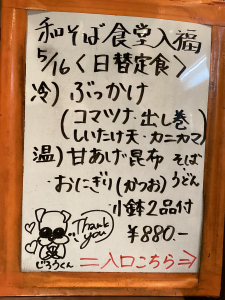 和そば食堂入福
5/16<日替定食>
冷)ぶっかけ
(コマツナ・出し巻
しいたけ天・カニカマ)
温)甘あげ・昆布 そば・うどん
おにぎり(かつお)
小鉢2品付
¥880.-
Thank you
じろうくん
=入口こちら⇒